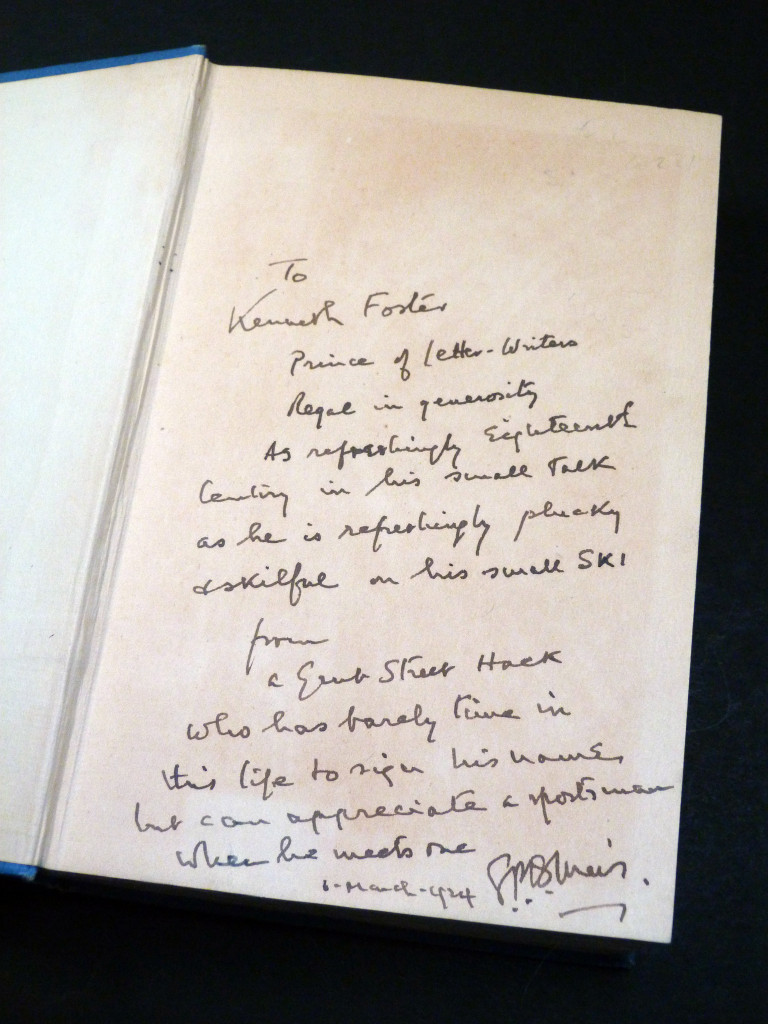 To
Kenneth Foster
Prince of Letter-Writers
Regal in generosity
As refreshingly Eighteenth
Century in his small talk
as he is refreshingly plucky
& skilful on his small SKI
from
a Grub Street Hack
who has barely time in
this life to sign his name,
but can appreciate a sportsman
when he meets one
March-1924